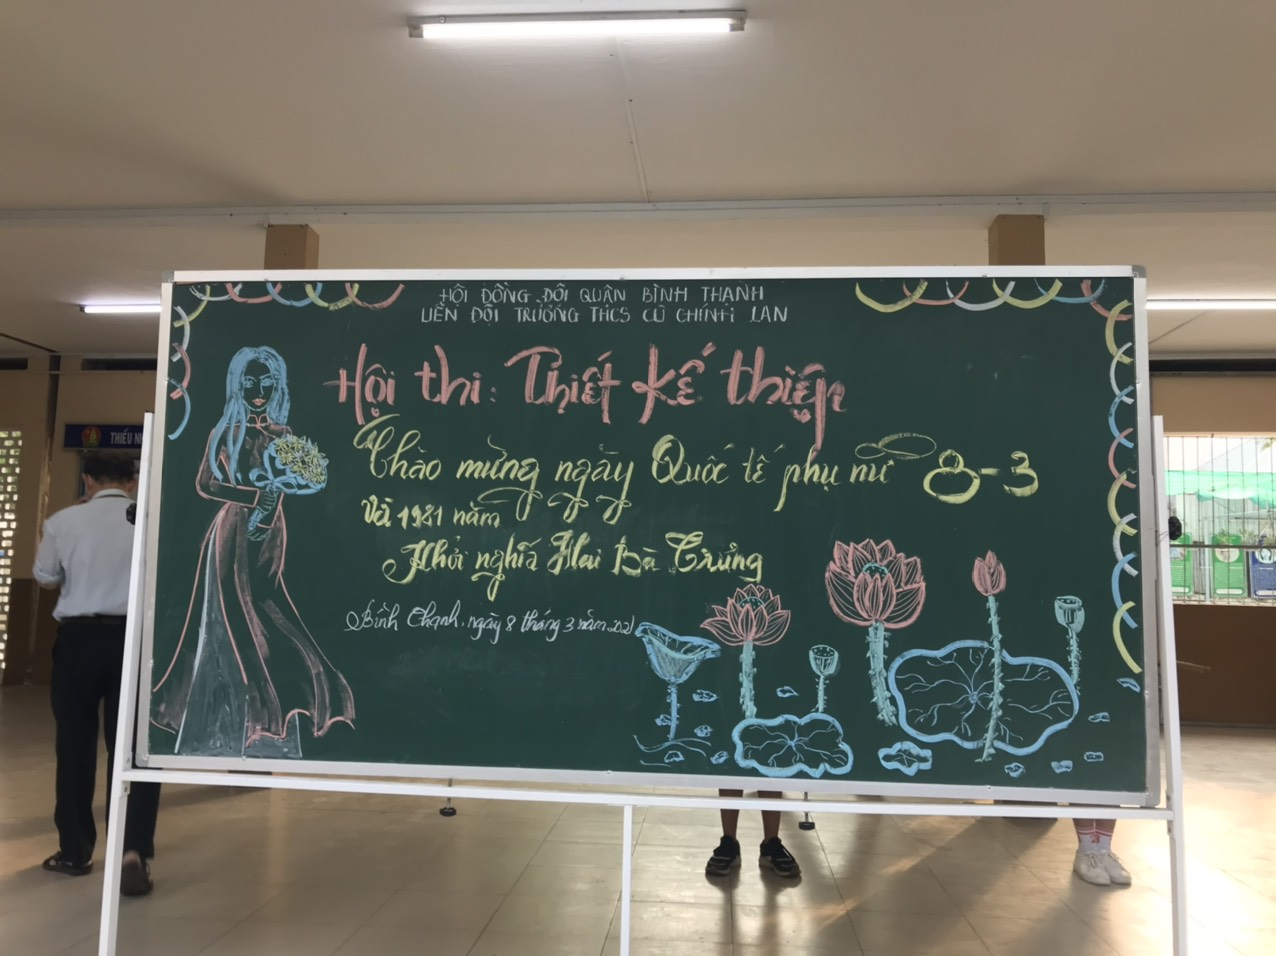 HỘI ĐỒNG ĐỘI QUẬN BÌNH THẠNH
LIÊN ĐỘI TRƯỜNG THCS CÙ CHÍNH LAN
Hội thi: Thiết kế thiệp
Chào mừng ngày Quốc tế phụ nữ 8-3
Và 1981 năm
Khởi nghĩa Hai Bà Trưng
Bình Thạnh, ngày 8 tháng 3 năm 2021
THIẾU NH